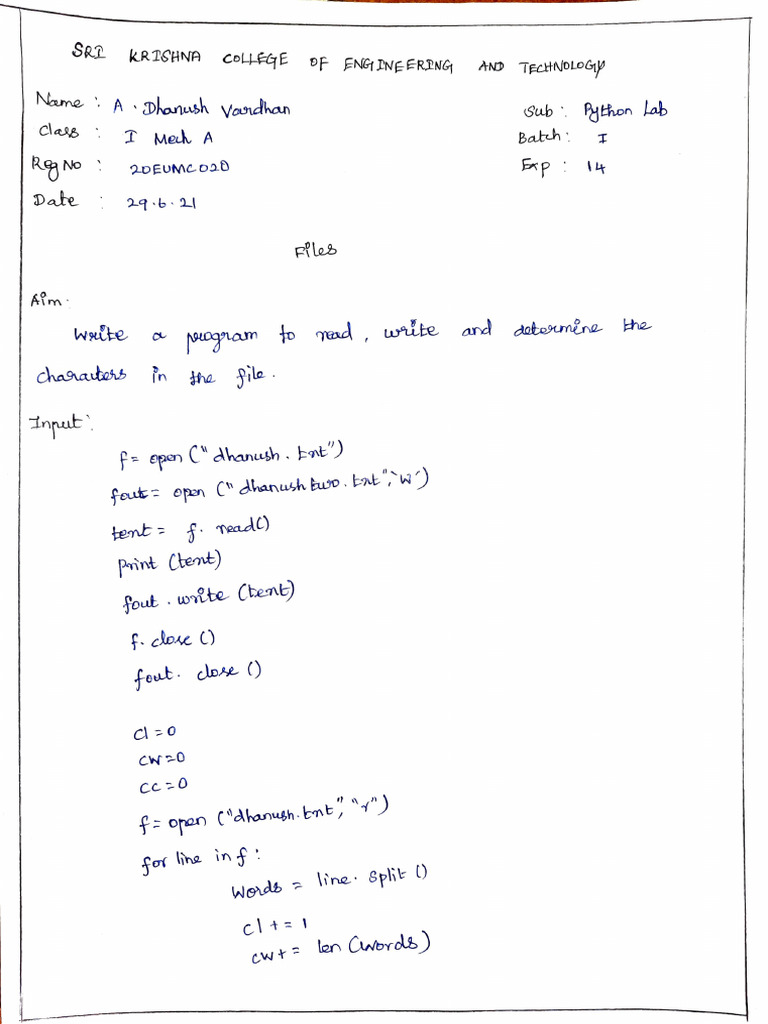 SRI KRISHNA COLLEGE OF ENGINEERING AND TECHNOLOGY
Name : A. Dhanush Vardhan Sub : Python Lab
Class : I Mech A Batch : I
Reg No : 20EUMC020 Exp : 14
Date : 29.6.21
Files
Aim.
Write a program to read, write and determine the
characters in the file.
Input:
f= open ("dhanush.txt")
fout= open ("dhanush two.txt","w")
text = f. read()
print (text)
fout. write (text)
f. close ()
fout. close ()
cl=0
cw=0
cc=0
f= open ("dhanush.txt", "r")
for line in f :
words = line. split ()
cl += 1
cw+= len (words)